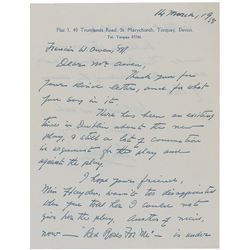 14 March, 19
Flat 3, 40 Trumlands Road, St. Marychurch, Torquay, Devon.
Tel. Torquay
Francis W. Owen,
Dear Mr Owen,
Thank you for
your kind letter, and for what
you say in it.
There has been an exciting
time in Dublin about the new
play, & still a lot of commotion
in argument for the play and
against the play.
I hope your friend,
Mr Hayden, wasn't too disappointed
when you told her I could not
give her the play. Another of mine,
now — "Red Roses For Me" — is under